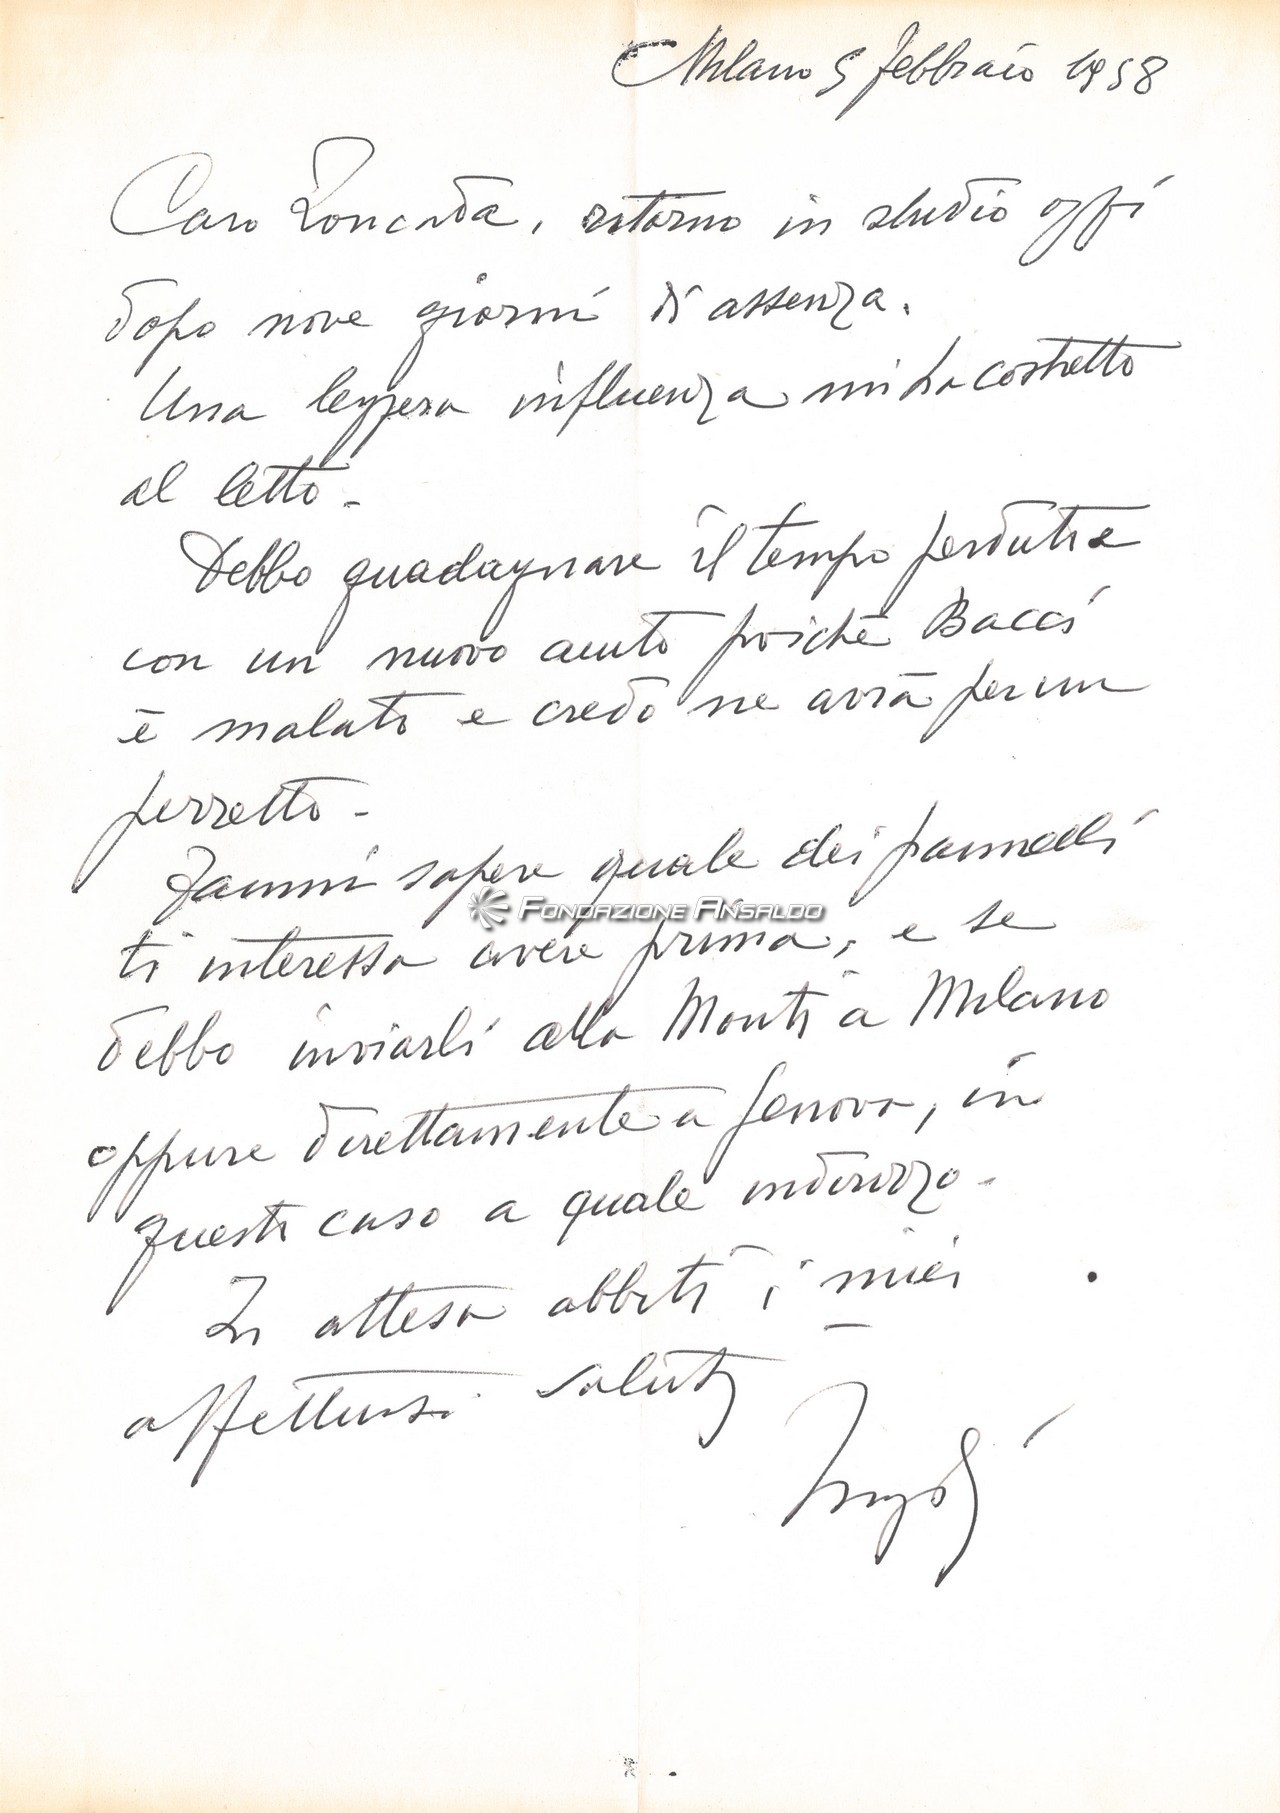 Milano 5 febbraio 1958
Caro Zoncada, ritorno in studio oggi
dopo nove giorni di assenza.
Una leggera influenza mi ha costretto
al letto -
Debbo guadagnare il tempo perduto e
con un nuovo aiuto poichè Bacci
è malato e credo ne avrà per un
pezzetto -
Fammi sapere quale dei pannelli
FONDAZIONE ANSALDO
ti interessa avere prima, e se
debbo inviarli alla Monti a Milano
oppure direttamente a Genova, in
questo caso a quale indirizzo -
In attesa abbiti i miei
affettuosi saluti